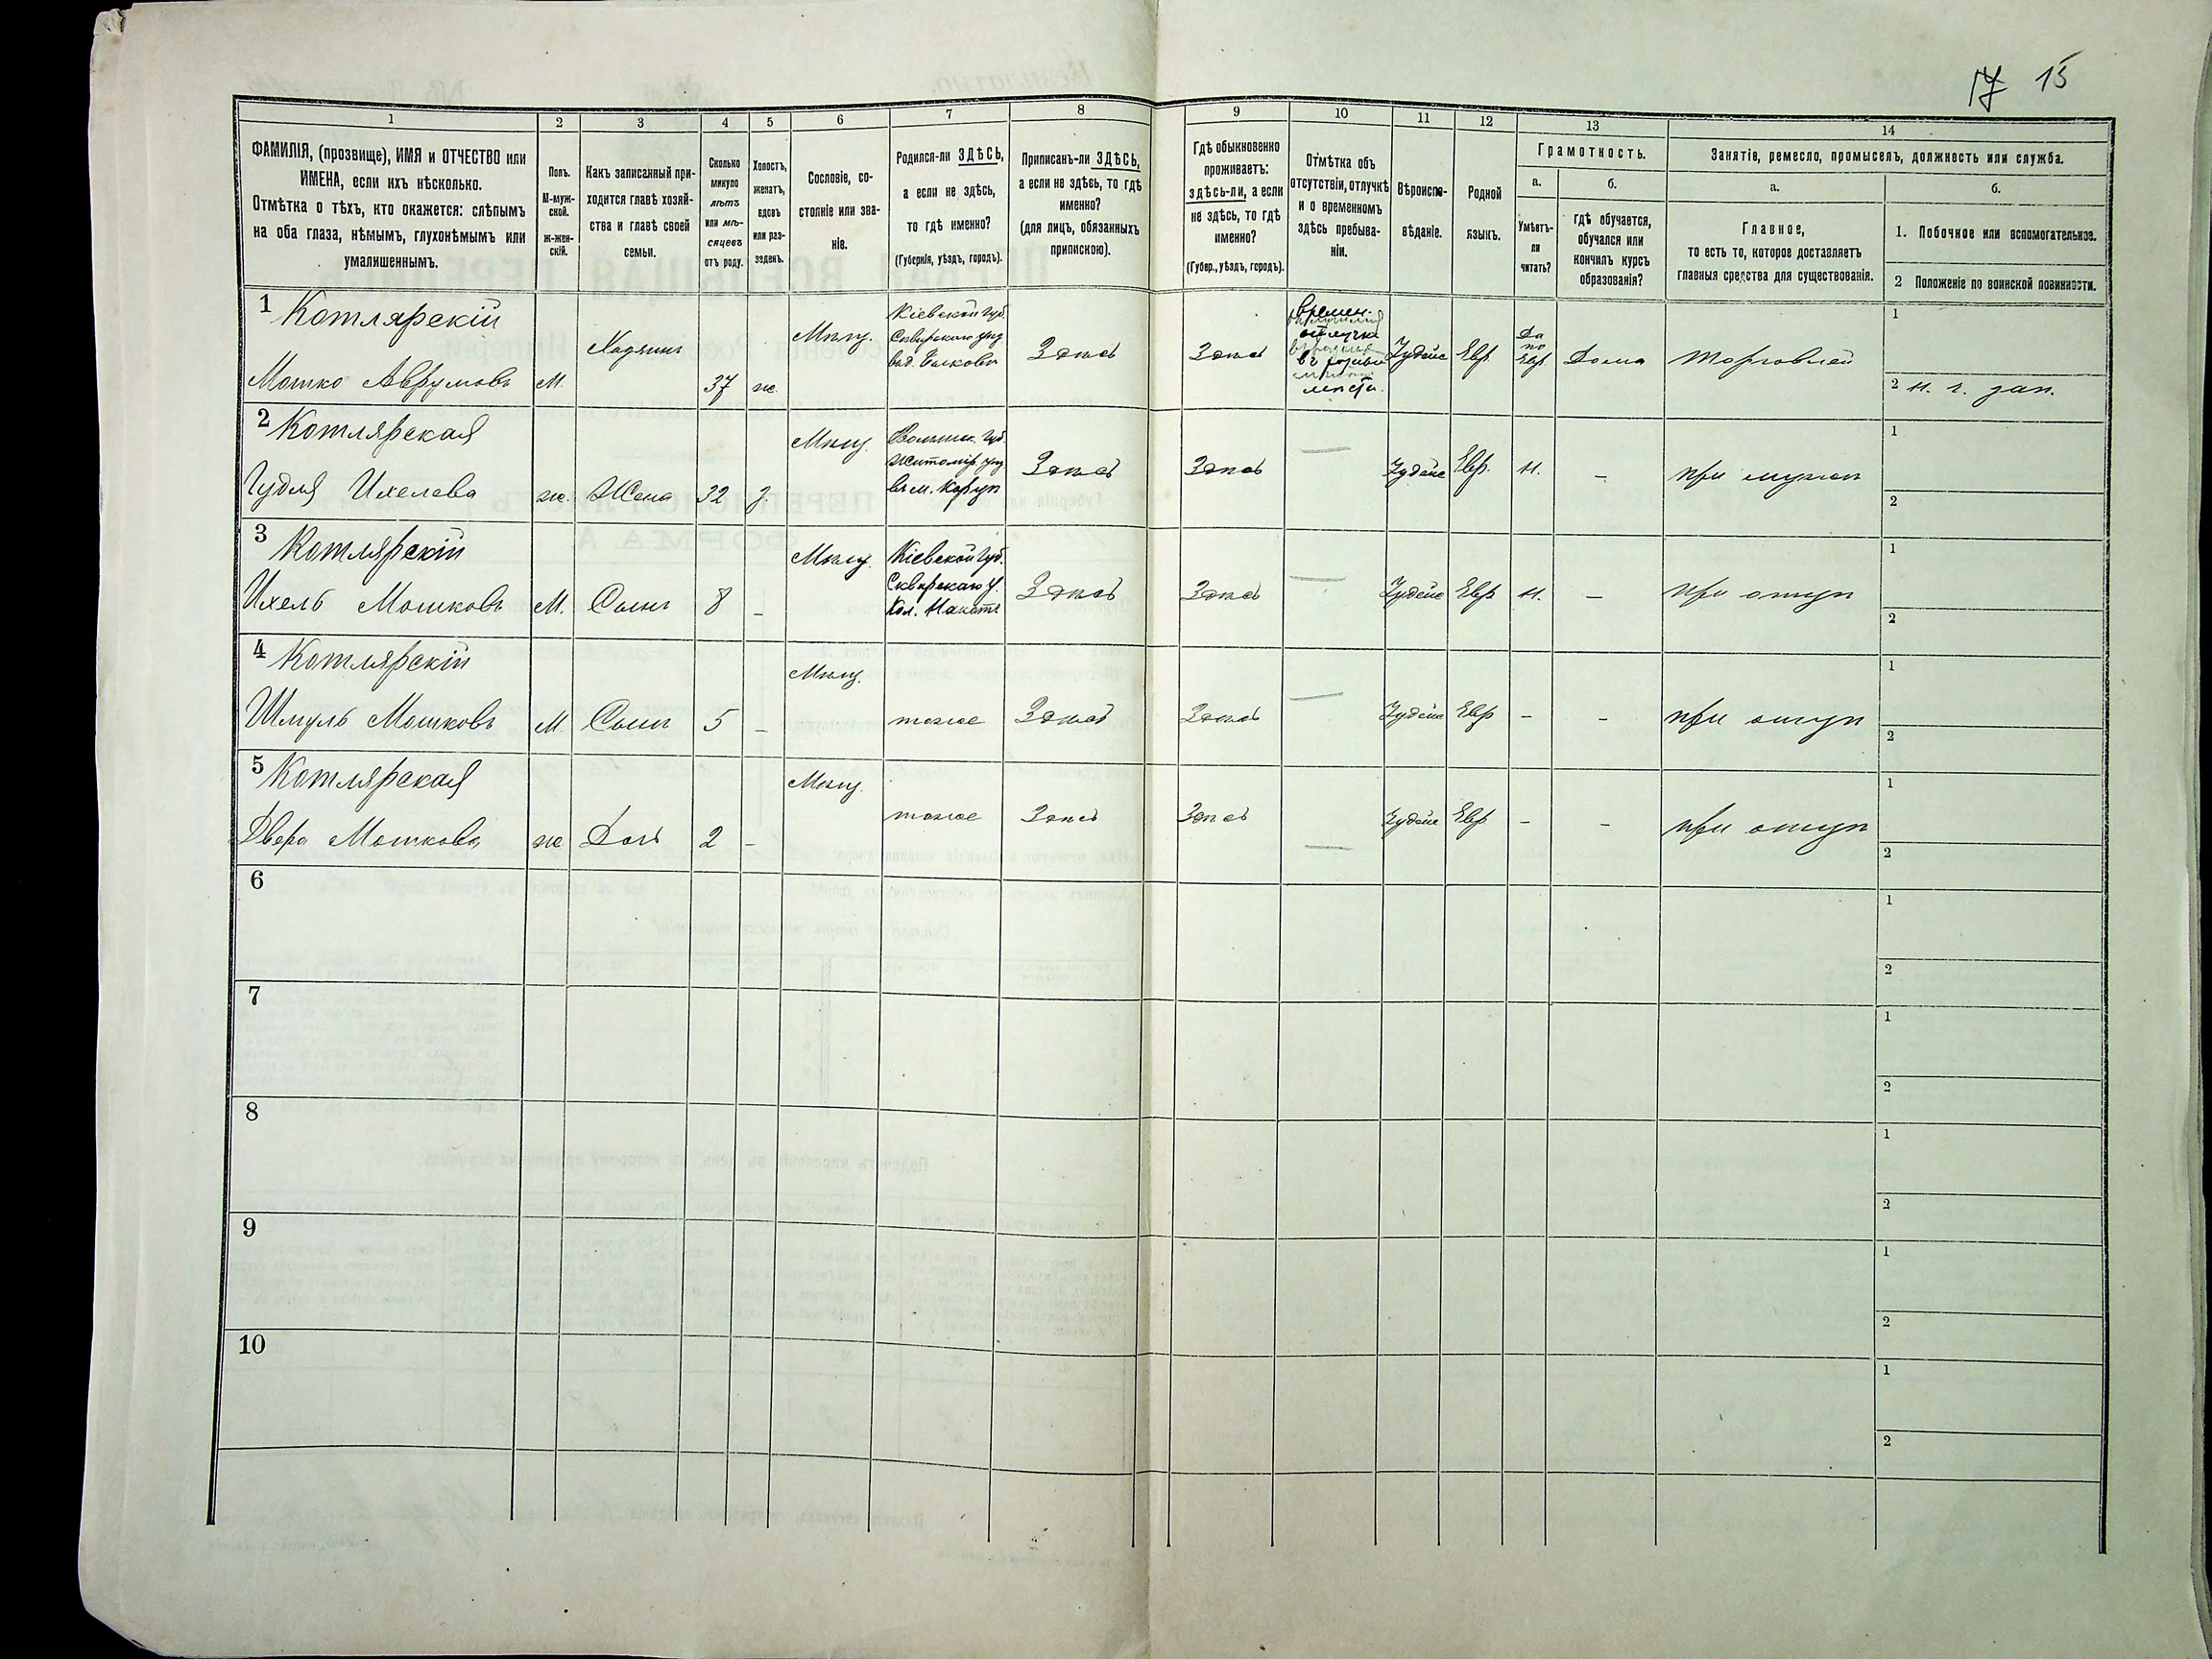 17 15
1 2 3 4 5 6 7 8 9 10 11 12 13 14
ФАМИЛІЯ, (прозвище), ИМЯ и ОТЧЕСТВО или
ИМЕНА, если ихъ нѣсколько.
Отмѣтка о тѣхъ, кто окажется: слѣпымъ
на оба глаза, нѣмымъ, глухонѣмымъ или
умалишеннымъ.
Полъ.
М-муж-
ской.
ж-жен-
скій.
Какъ записанный при-
ходится главѣ хозяй-
ства и главѣ своей
семьи.
Сколько
минуло
лѣтъ
или мѣ-
сяцевъ
отъ роду.
Холостъ,
женатъ,
вдовъ
или раз-
веденъ.
Сословіе, со-
стояніе или зва-
ніе.
Родился-ли ЗДѢСЬ,
а если не здѣсь,
то гдѣ именно?
(Губернія, уѣздъ, городъ).
Приписанъ-ли ЗДѢСЬ,
а если не здѣсь, то гдѣ
именно?
(для лицъ, обязанныхъ
припискою).
Гдѣ обыкновенно
проживаетъ:
здѣсь-ли, а если
не здѣсь, то гдѣ
именно?
(Губер., уѣздъ, городъ).
Отмѣтка объ
отсутствіи, отлучкѣ
и о временномъ
здѣсь пребыва-
ніи.
Вѣроиспо-
вѣданіе.
Родной
языкъ.
Грамотность.
а.
Умѣетъ-
ли
читать?
б.
гдѣ обучается,
обучался или
кончилъ курсъ
образованія?
Занятіе, ремесло, промыселъ, должность или служба.
а.
Главное,
то есть то, которое доставляетъ
главныя средства для существованія.
б.
1. Побочное или вспомогательное.
2 Положеніе по воинской повинности.
1 Котлярскій
Мошко Аврумовъ
М.
Хозяинъ
37
ж.
Мѣщ.
Кіевской губ.
Сквирскаго
Здѣсь
Здѣсь
времен.
отлучка
въ
Іудейс
Евр
Да
по
Евр.
Дома
Торговлей
1
2 н. г. зап.
2 Котлярская
Ихелева
ж.
Жена
32
з.
Мѣщ.
Волынс. губ.
Житомір.
въ м.
Здѣсь
Здѣсь
—
Іудейс
Евр.
Н.
–
при мужѣ
1
2
3 Котлярскій
Ихель Мошковъ
М.
Сынъ
8
–
Мѣщ.
Кіевской губ.
Сквирскаго у.
Кол.
Здѣсь
Здѣсь
—
Іудейс
Евр
Н.
–
при отцѣ
1
2
4 Котлярскій
Шмуль Мошковъ
М.
Сынъ
5
–
Мѣщ.
тоже
Здѣсь
Здѣсь
—
Іудейс
Евр
–
–
при отцѣ
1
2
5 Котлярская
Двера Мошкова
ж
Дочь
2
–
Мѣщ.
тоже
Здѣсь
Здѣсь
—
Іудейс
Евр
–
–
при отцѣ
1
2
6
1
2
7
1
2
8
1
2
9
1
2
10
1
2